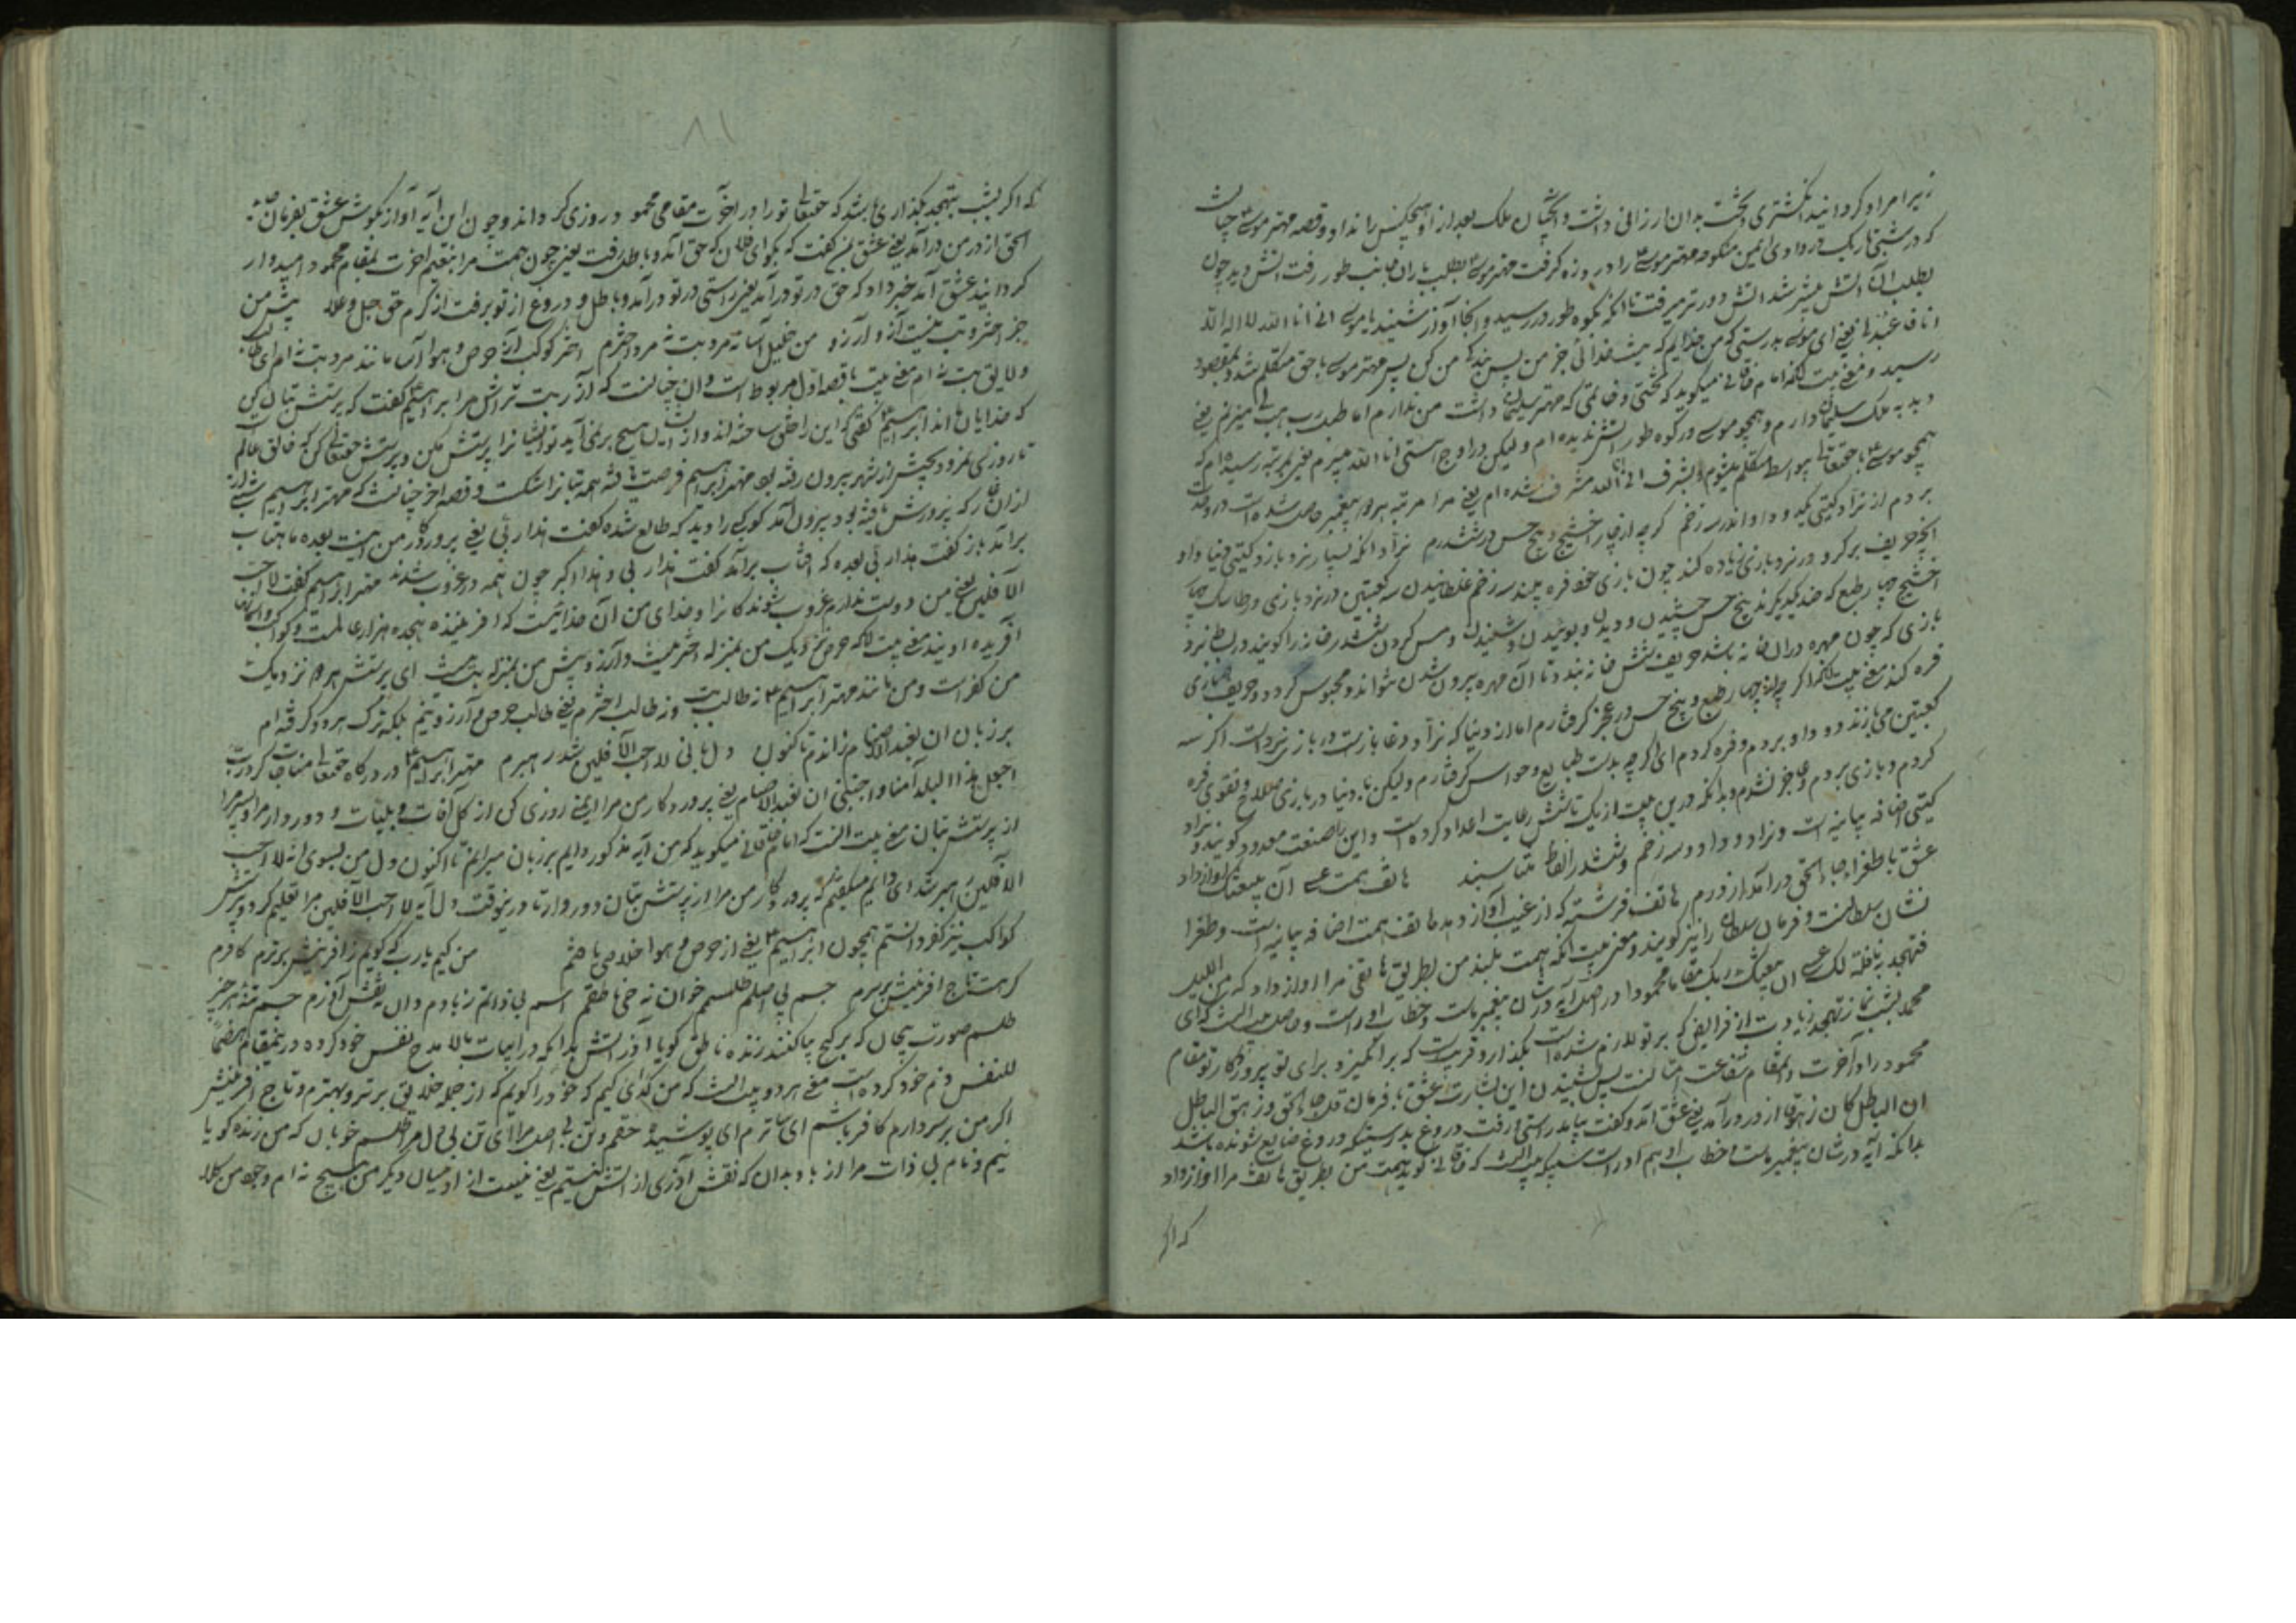 زیر امر او کردانید انکشتری و تخت بدان ارزانی داشت و انچنان ملک بعد از او هیچکس را نداد و قصه مهتر موسی چنانست
که در شبی تاریک در وادی ایمن منکوحه مهتر موسی را درد زه کرفت مهتر موسی بطلب یاران جانب طور رفت آتش دید چون
بطلب آن آتش پیشتر شد آتش دورتر میرفت تا انکه بکوه طور در رسید و انجا آواز شنید یا موسی انی انا الله لا اله الا
انا فاعبدنی یعنی ای موسی بدرستی که من خدایم که نیست خدائی جز من پس بندکی من کن پس مهتر موسی با حق متکلم شد و بمقصود
رسید و معنی بیت انکه امام خاقانی میکوید که تختی و خاتمی که مهتر سلیمان داشت من ندارم اما طبل رب هب لی میزنم یعنی
دبدبه ملک سلیمان دارم و همچو موسی در کوه طور آتش ندیده ام ولیکن در اوج استی انا الله میپرم یعنی بمرتبه رسیده ام که
همچو موسی با حقتعالی بواسطه متکلم میشوم و بشرف انی انا الله مشرف شده ام یعنی مرا مرتبه هر دو پیغمبر حاصل شده است
بردم از نراد کیتی یک دو داو اندر سه زخم کرچه از چار اخشیج و پنج حس در ششدرم نراد انکه بسیار نرد بازد کیتی دنیا داو
انچه حریف بر کرو در نرد بازی زیاده کند چون بازی خود فره بیند سه زخم غلطانیدن سه کعبتین در نرد بازی
اخشیج چهار طبع که ضد یکدیکرند پنج حس چشیدن و دیدن و بوئیدن و شنیدن و مس کردن ششدر خانه را کویند در بساط نرد
بازی که چون مهره در ان خانه باشد حریف شش خانه بندد تا آن مهره بیرون شدن نتواند و محبوس کردد و حریف بازی
فره کند معنی بیت انکه اکرچه از چهار طبع و پنج حس در عجز کرفتارم اما از دنیا که نراد دغا بازست در بازی نرد است اکر سه
کعبتین می بازند دو داو بردم و فره کردم ای اکرچه بدست طبایع و حواس کرفتارم ولیکن با دنیا در بازی صلاح و تقوی فره
کردم و بازی بردم و عاجز نشدم و بدانکه درین بیت از یک تا شش رعایت اعداد کرده است و این را صنعت معدود کویند و نراد
کیتی اضافه بیانیه است و نراد و داو و سه زخم و ششدر الفاظ متناسبند هاتف همت عسی ان یبعثک آواز داد
عشق با طغرای جاء الحق درآمد از درم هاتف فرشته که از غیب آواز دهد هاتف همت اضافه بیانیه است و طغرا
نشان سلطانست و فرمان سلطان را نیز کویند و معنی بیت آنکه همت بلند من بطریق هاتفی مرا آواز داد که من اللیل
فتهجد به نافلة لک عسی ان یبعثک ربک مقاما محمودا در اصل آیه در شان پیغمبر ماست و خطاب او راست و حاصل معنی انست که ای
محمد بشب نماز تهجد زیادت از فرایض که بر تو لازم شده است بکذار و قریبست که برانکیزد برای تو پروردکار تو مقام
محمود را در آخرت و انمقام شفاعت امتانست پس بشنیدن این بشارت عشق با فرمان قل جاء الحق و زهق الباطل
ان الباطل کان زهوقا از در درآمد یعنی عشق آمد و کفت بیامد راستی و رفت دروغ بدرستیکه دروغ ضایع شونده باشد
بدانکه آیه در شان پیغمبر ماست خطاب او هم او راست که خاقانی کوید همت من بطریق هاتف مرا آواز داد
که اکر
۸۱
که اکر بشب تهجد بکذاری باشد که حقتعالی تو را در آخرت مقامی محمود روزی کرداند و چون این آیه آواز بکوش عشق بفرمان
الحق از در من درآمد یعنی عشق بمن کفت که بکو ای فلان که حق آمد و باطل رفت یعنی چون همت مرا بنعیم آخرت بمقام محمود امیدوار
کردانید عشق آمد خبر داد که حق در تو درآمد یعنی راستی در تو درآمد و باطل و دروغ از تو برفت از کرم حق جل و علا پیش من
جز اختر و بت نیست آز و آرزو من خلیل آسا نه مرد بت نه مرد اخترم اختر کوکب آز حرص و هوا آسا مانند مرد بت نه ام ای طالب
و لایق بت نه ام معنی بیت با قصه اول مربوط است و آن چنانست که آزر بت تراش مر ابراهیم کفت که پرستش بتان کن
که خدایان ما اند ابراهیم کفتی که این را خلق ساخته اند و از ایشان هیچ برنمی آید تو ایشانرا پرستش مکن و پرستش حقتعالی کن که خالق عالم
تا روزی نمرود بجشن از شهر بیرون رفته بود مهتر ابراهیم فرصت یافته همه بتانرا شکست و قصه اختر چنانست که مهتر ابراهیم شبی از
از ان غار که پرورش یافته بود بیرون آمد کوکبی را دید که طالع شده کفت هذا ربی یعنی پروردکار من اینست بعده ماهتاب
برآمد باز کفت هذا ربی بعده که آفتاب برآمد کفت هذا ربی و هذا اکبر چون همه در غروب شدند مهتر ابراهیم کفت لا احب
الآفلین یعنی من دوست ندارم غروب شوندکانرا و خدای من آن خدائیست که آفریننده هیجده هزار عالمست و کواکب
آفریده اویند معنی بیت آنکه حرص نزدیک من بمنزله اخترست و آرزو پیش من بمنزله بت است ای پرستش هر دو نزدیک
من کفر است و من مانند مهتر ابراهیم نه طالب بت و نه طالب اخترم یعنی طالب حرص و آرزو نیم بلکه ترک هر دو کرفته ام
بر زبان ان نعبد الاصنام راندم تا کنون دل بانی لا احب الآفلین شد رهبرم مهتر ابراهیم در درکاه حقتعالی مناجات کرد رب
اجعل هذا البلد آمنا و اجنبنی ان نعبد الاصنام یعنی پروردکار من مرا ایمنی روزی کن از کل آفات و بلیات و دور دار مرا و پسر مرا
از پرستش بتان معنی بیت انست که امام خاقانی میکوید که من آیه مذکور دایم بر زبان میرانم تا اکنون دل من بسوی انی لا احب
الآفلین رهبر شد ای دایم میکفتم که پروردکار من مرا از پرستش بتان دور دار تا درینوقت دل آیه لا احب الآفلین مرا تعلیم کرد و پرستش
کواکب نیز کفر دانستم همچون ابراهیم یعنی از حرص و هوا خلاصی یافتم من کیم یارب که کویم ز آفرینش برترم کافرم
کر هست تاج آفرینش بر سرم جسم بی اصلم طلسم خوان نه حی ناطقم اسم بی ذاتم ز بادم دان نه نقش آزرم جسم تنه هر چیز
طلسم صورت بیجان که بر کنج بپا کنند زنده ناطق کویا آذر آتش بدانکه در ابیات بالا مدح نفس خود کرده درینمقام هضما
للنفس ذم خود کرده است معنی هر دو بیت انست که من کدای کیم که خود را کویم که از جمله خلایق برتر و بهترم و تاج آفرینش
اکر من بر سر دارم کافر باشم ای ساترم ای پوشنده حقم و تن بی اصلم مرا ای تن بی جان مرا طلسم خوان که من زنده کویا
نیم و نام بی ذات مرا از باد بدان که نقش آذری از آتش نیستم یعنی نیست از آدمیان دیکر من هیچ نه ام و